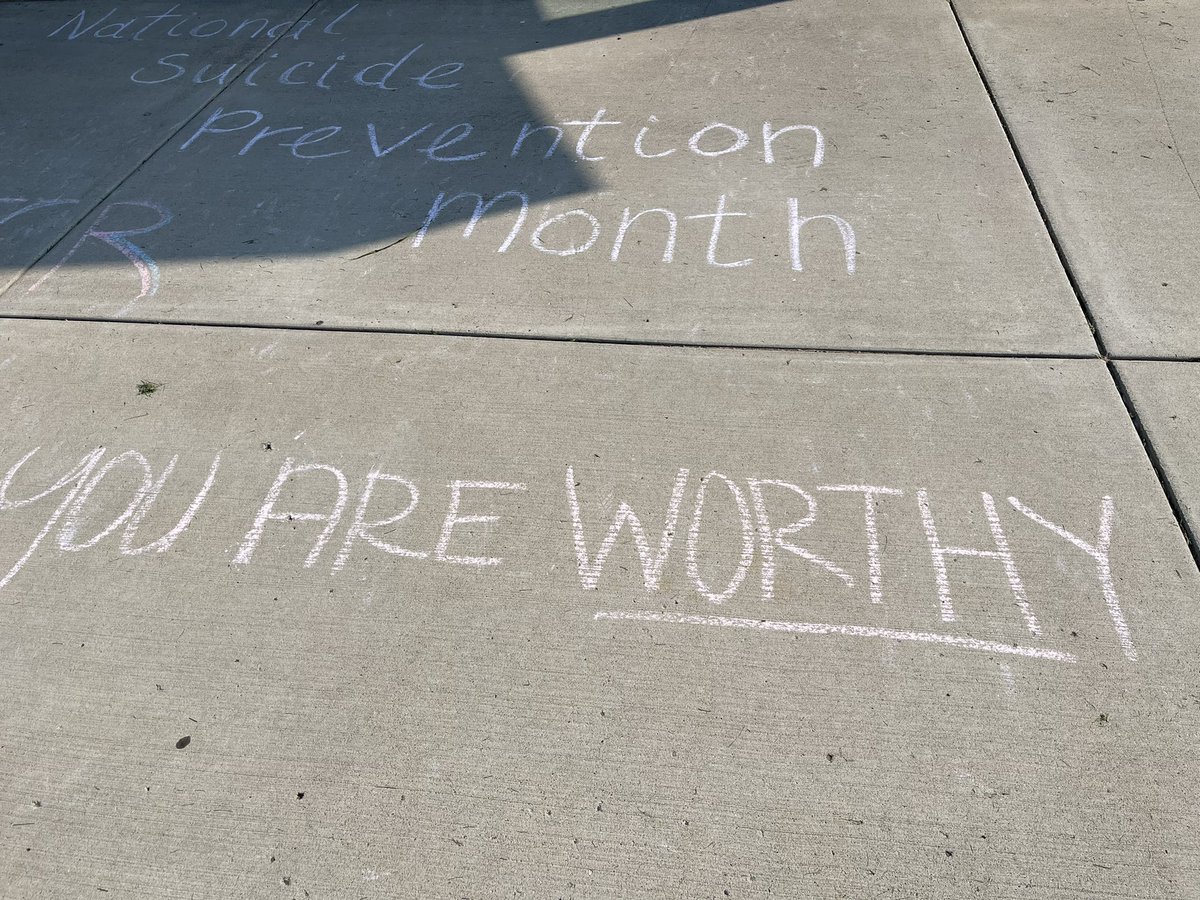 National
Suicide
Prevention
month
R
YOU ARE WORTHY